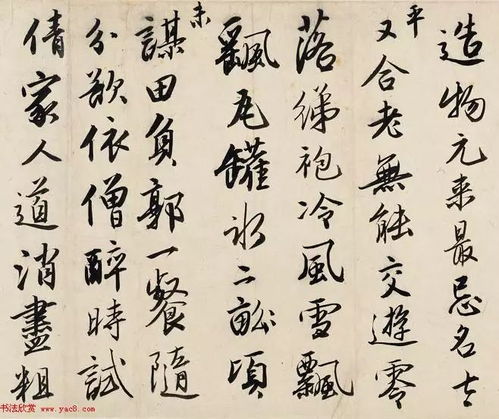 造物元来最忌名太
平又合老無能交遊零
落綈袍冷風雪飄
飖瓦罐冰二畝頃
未謀田負郭一餐隨
分欲依僧醉時試
倩家人道消盡粗
书法欣赏 www.yac8.com